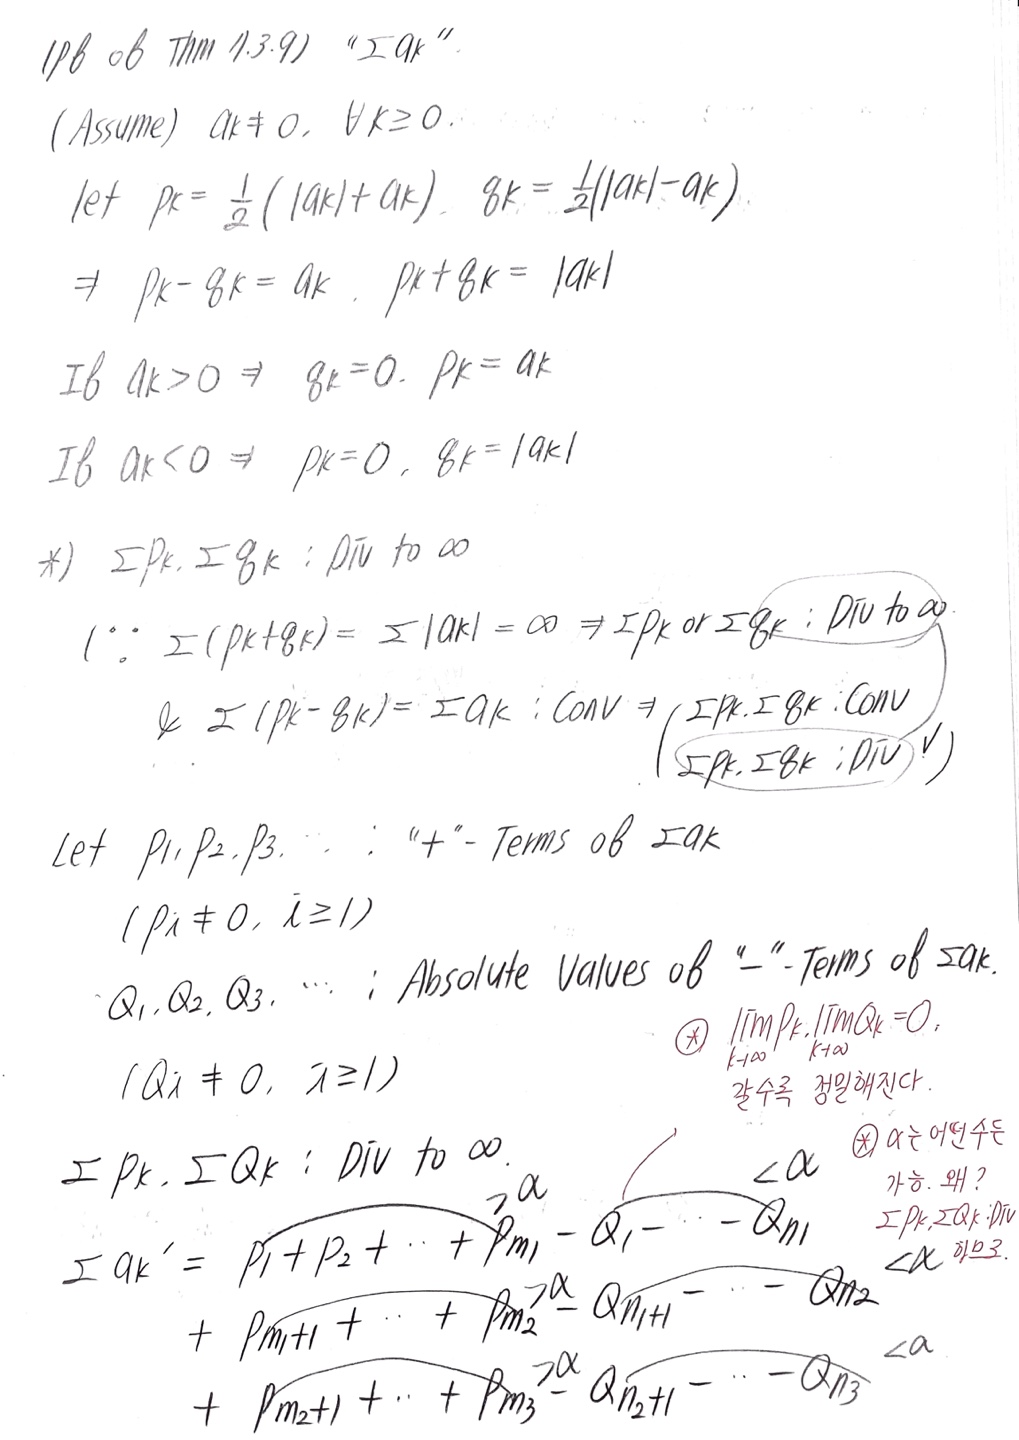 (Pf of Thm 1.3.9) "Σak".
(Assume) ak≠0, ∀k≥0.
let pk=1/2(|ak|+ak), qk=1/2(|ak|-ak)
⇒ pk-qk=ak, pk+qk=|ak|
If ak>0 ⇒ qk=0. pk=ak
If ak<0 ⇒ pk=0, qk=|ak|
*) Σpk, Σqk : Div to ∞
(∵ Σ(pk+qk)= Σ|ak|=∞ ⇒ Σpk or Σqk : Div to ∞.
& Σ(pk-qk)= Σak : Conv ⇒ (Σpk, Σqk : Conv
Σpk, Σqk : Div ✓)
Let P1, P2, P3, ... : "+"-Terms of Σak
(Pi≠0, i≥1)
Q1, Q2, Q3, ... : Absolute Values of "-"-Terms of Σak.
(Qi≠0, i≥1)
⊛ lim k→∞ Pk, lim k→∞ Qk=0.
갈수록 정밀해진다.
ΣPk, ΣQk : Div to ∞.
⊛ α는 어떤수든
가능. 왜?
ΣPk, ΣQk:Div
하므로.
Σak'= P1+P2+...+Pm1 >α -Q1-...-Qn1 <α
+ Pm1+1+...+Pm2 >α -Qn1+1-...-Qn2 <α
+ Pm2+1+...+Pm3 >α -Qn2+1-...-Qn3 <α